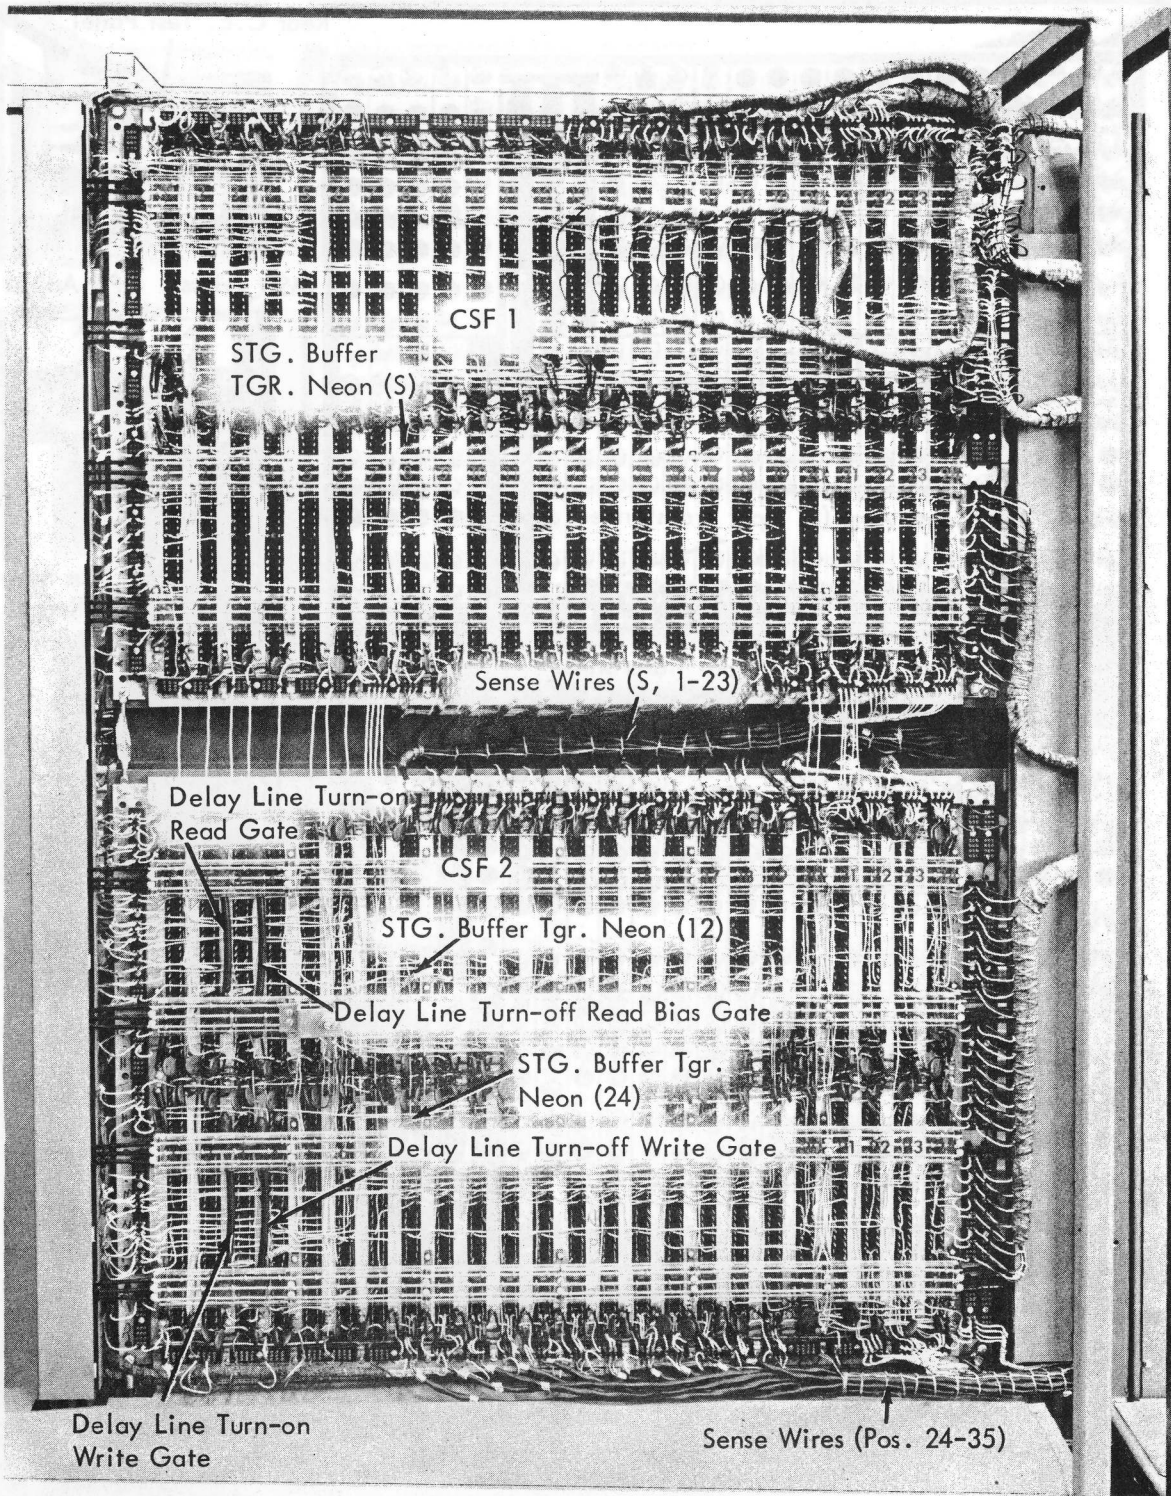 CSF 1
STG. Buffer
TGR. Neon (S)
Sense Wires (S, 1-23)
Delay Line Turn-on
Read Gate
CSF 2
STG. Buffer Tgr. Neon (12)
Delay Line Turn-off Read Bias Gate
STG. Buffer Tgr.
Neon (24)
Delay Line Turn-off Write Gate
Delay Line Turn-on
Write Gate
Sense Wires (Pos. 24-35)